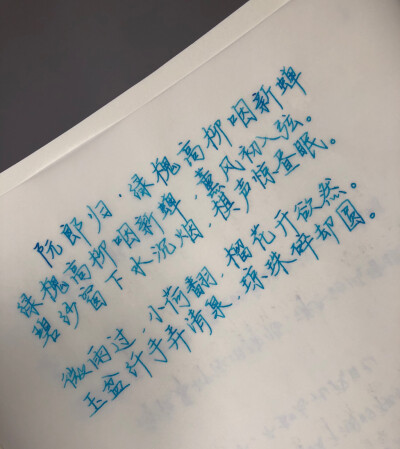 阮郎归·绿槐高柳咽新蝉
绿槐高柳咽新蝉，薰风初入弦。
碧纱窗下水沉烟，棋声惊昼眠。
微雨过，小荷翻，榴花开欲然。
玉盆纤手弄清泉，琼珠碎却圆。